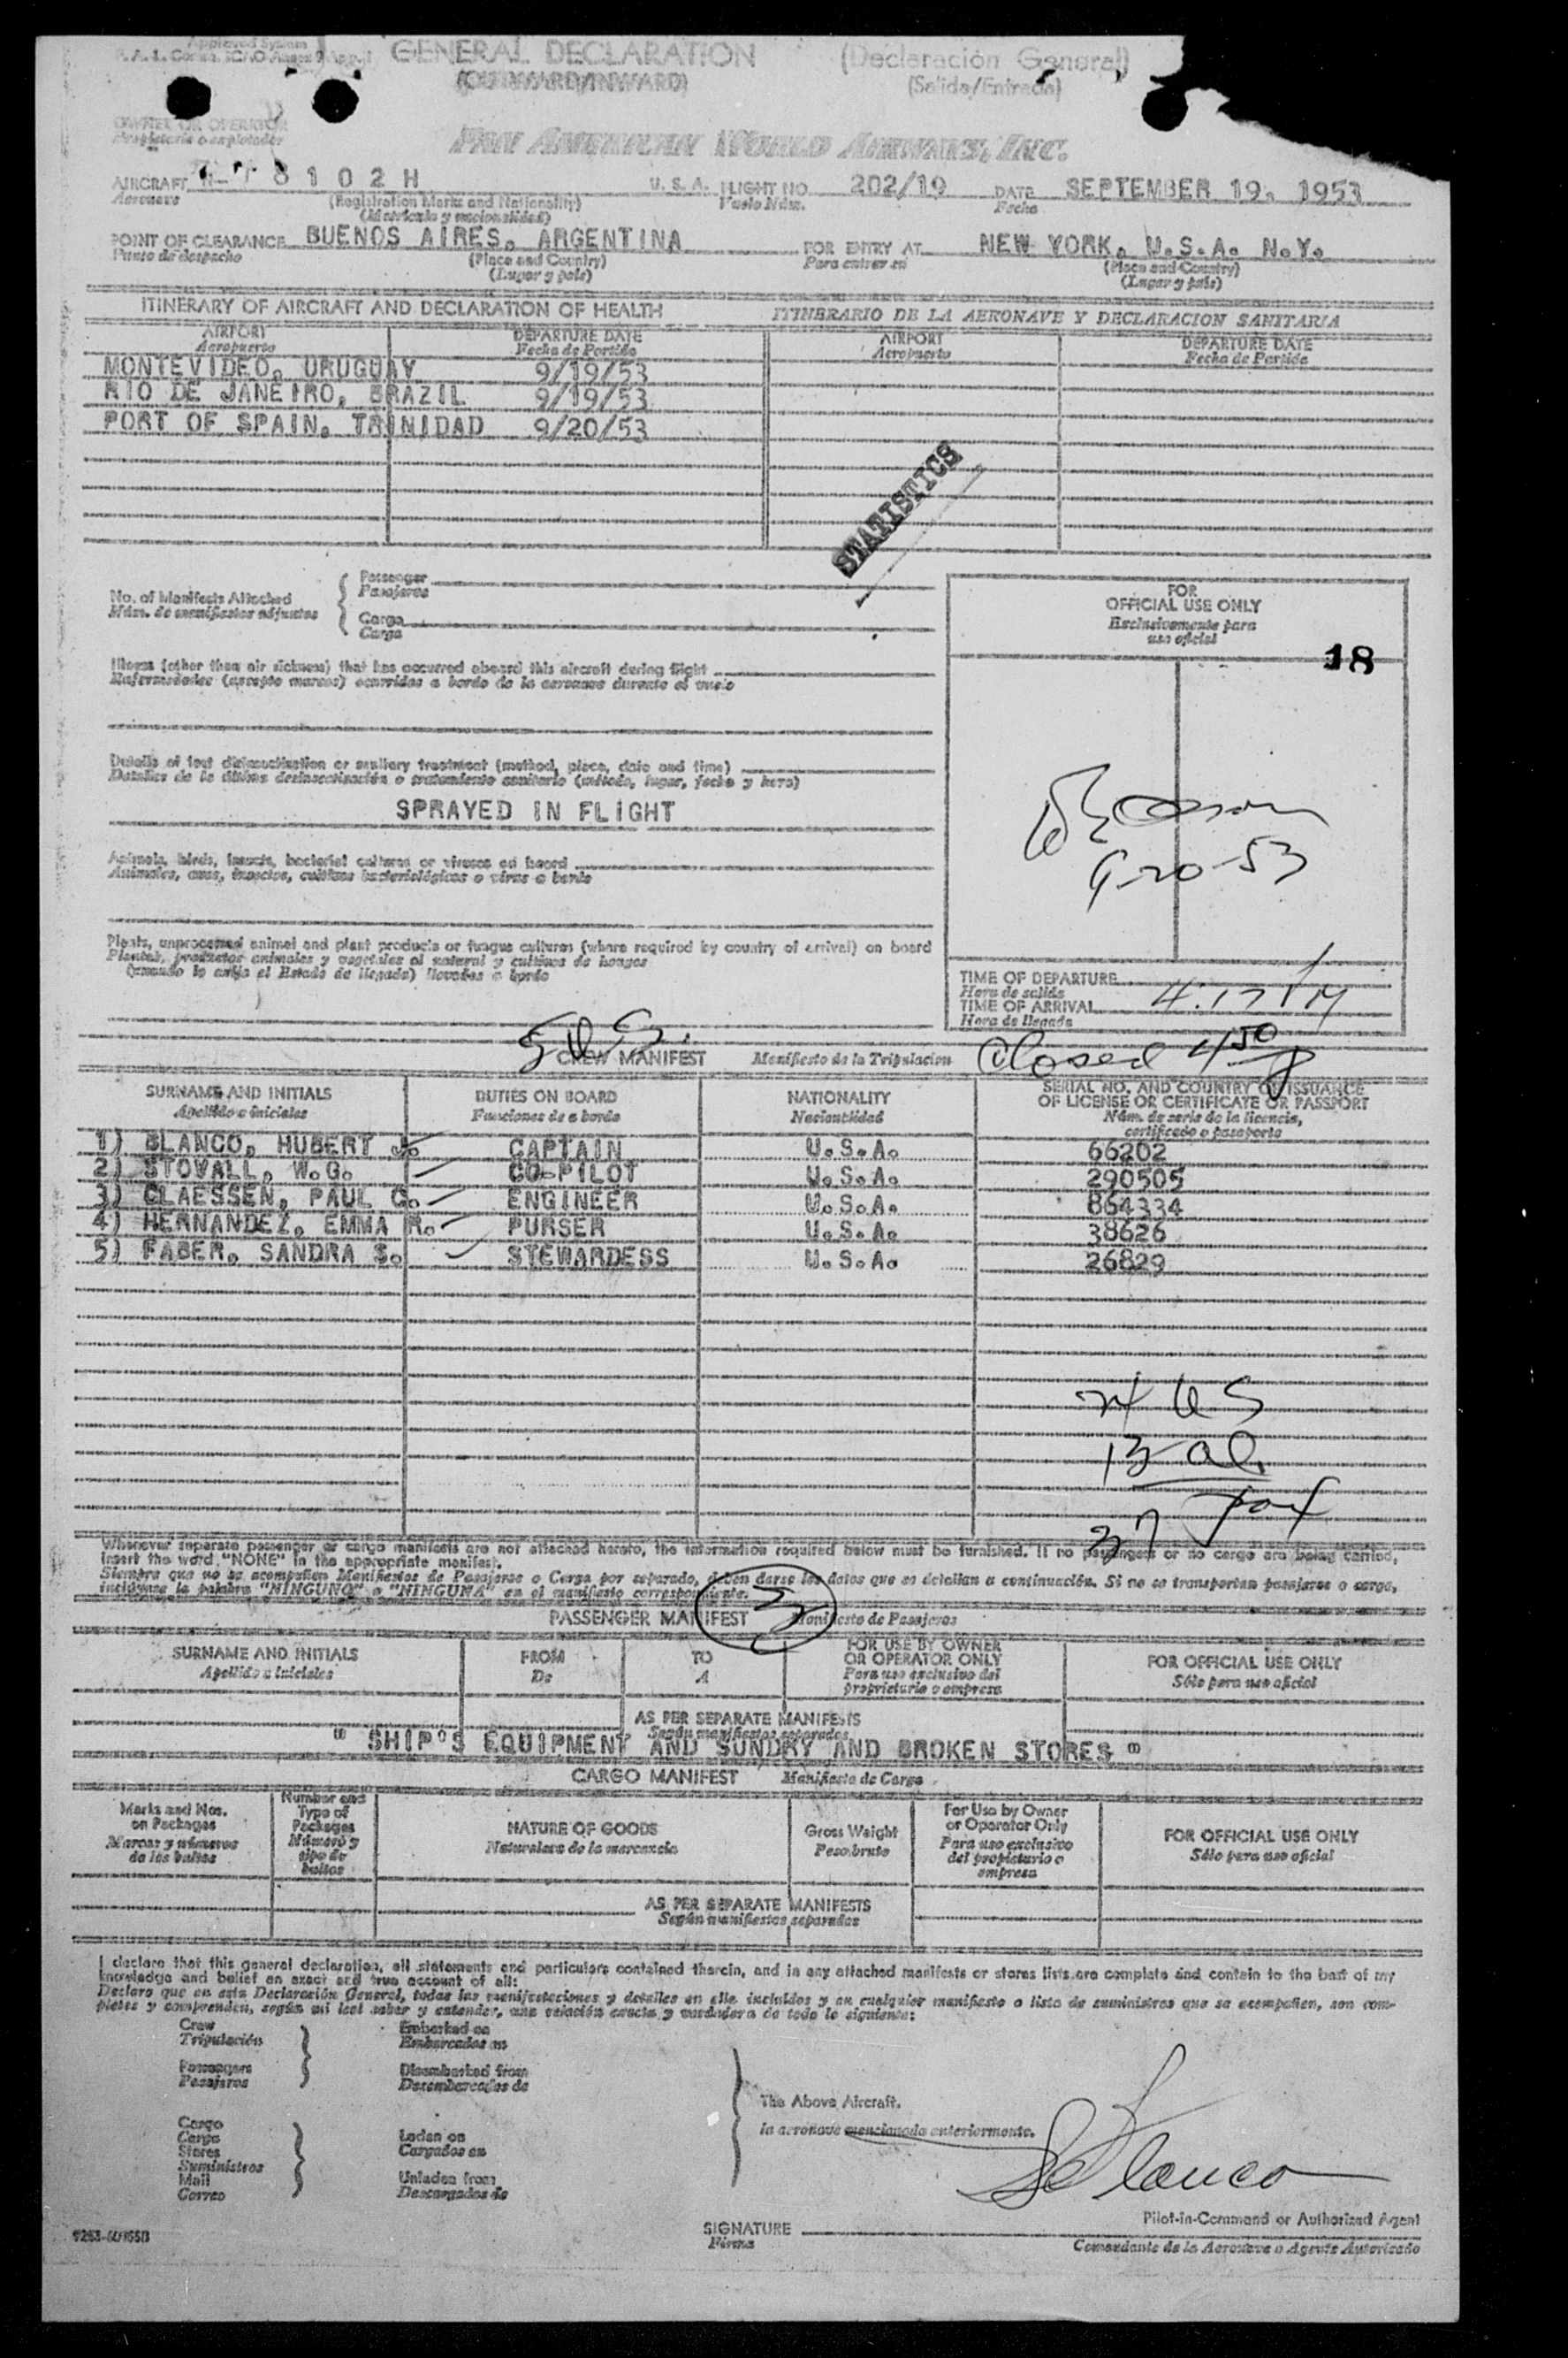 GENERAL DECLARATION (Declaración General)
(OUTWARD/INWARD) (Salida/Entrada)
OWNER OR OPERATOR
Propietario o explotador
PAN AMERICAN WORLD AIRWAYS, INC.
AIRCRAFT 8102H U. S. A. FLIGHT NO. 202/19 DATE SEPTEMBER 19, 1953
Aeronave (Registration Marks and Nationality) Vuelo Núm. Fecha
(Matrícula y nacionalidad)
POINT OF CLEARANCE BUENOS AIRES, ARGENTINA FOR ENTRY AT NEW YORK, U.S.A. N.Y.
Punto de despacho (Place and Country) Para entrar en (Place and Country)
(Lugar y país) (Lugar y país)
ITINERARY OF AIRCRAFT AND DECLARATION OF HEALTH ITINERARIO DE LA AERONAVE Y DECLARACION SANITARIA
AIRPORT DEPARTURE DATE AIRPORT DEPARTURE DATE
Aeropuerto Fecha de Partida Aeropuerto Fecha de Partida
MONTEVIDEO, URUGUAY 9/19/53
RIO DE JANEIRO, BRAZIL 9/19/53
PORT OF SPAIN, TRINIDAD 9/20/53
STATISTICS
No. of Manifests Attached
Núm. de manifiestos adjuntos
Passenger
Pasajeros
Cargo
Carga
FOR
OFFICIAL USE ONLY
Exclusivamente para
uso oficial
18
Illness (other than air sickness) that has occurred aboard this aircraft during flight
Enfermedades (excepto mareos) ocurridas a bordo de la aeronave durante el vuelo
Details of last disinsectization or sanitary treatment (method, place, date and time)
Detalles de la última desinsectización o tratamiento sanitario (método, lugar, fecha y hora)
SPRAYED IN FLIGHT
9-20-53
Animals, birds, insects, bacterial cultures or viruses on board
Animales, aves, insectos, cultivos bacteriológicos o virus a bordo
Plants, unprocessed animal and plant products or fungus cultures (where required by country of arrival) on board
Plantas, productos animales y vegetales al natural y cultivos de hongos
(cuando lo exija el Estado de llegada) llevados a bordo
TIME OF DEPARTURE
Hora de salida
TIME OF ARRIVAL 4:17 PM
Hora de llegada
CREW MANIFEST Manifiesto de la Tripulacion Closed 4 50
SURNAME AND INITIALS DUTIES ON BOARD NATIONALITY SERIAL NO. AND COUNTRY OF ISSUANCE
OF LICENSE OR CERTIFICATE OR PASSPORT
Apellido e iniciales Funciones de a bordo Nacionalidad Núm. de serie de la licencia,
certificado o pasaporte
1) BLANCO, HUBERT J. CAPTAIN U.S.A. 66202
2) STOVALL, W.G. CO-PILOT U.S.A. 290505
3) CLAESSEN, PAUL C. ENGINEER U.S.A. 864334
4) HERNANDEZ, EMMA R. PURSER U.S.A. 38626
5) FABER, SANDRA S. STEWARDESS U.S.A. 26829
24 US
13 al.
37 pax
Whenever separate passenger or cargo manifests are not attached hereto, the information required below must be furnished. If no passengers or no cargo are being carried,
insert the word "NONE" in the appropriate manifest.
Siempre que no se acompañen Manifiestos de Pasajeros o Carga por separado, deben darse los datos que se detallan a continuación. Si no se transportan pasajeros o carga,
inclúyase la palabra "NINGUNO" o "NINGUNA" en el manifiesto correspondiente.
3
PASSENGER MANIFEST Manifiesto de Pasajeros
SURNAME AND INITIALS FROM TO FOR USE BY OWNER
OR OPERATOR ONLY FOR OFFICIAL USE ONLY
Apellido e iniciales De A Para uso exclusivo del
propietario o empresa Sólo para uso oficial
AS PER SEPARATE MANIFESTS
Según manifiestos separados
" SHIP'S EQUIPMENT AND SUNDRY AND BROKEN STORES "
CARGO MANIFEST Manifiesto de Carga
Marks and Nos.
on Packages
Marcas y números
de los bultos
Number and
Type of
Packages
Número y
tipo de
bultos
NATURE OF GOODS
Naturaleza de la mercancía
Gross Weight
Peso bruto
For Use by Owner
or Operator Only
Para uso exclusivo
del propietario o
empresa
FOR OFFICIAL USE ONLY
Sólo para uso oficial
AS PER SEPARATE MANIFESTS
Según manifiestos separados
I declare that this general declaration, all statements and particulars contained therein, and in any attached manifests or stores lists are complete and contain to the best of my
knowledge and belief an exact and true account of all:
Declaro que en esta Declaración General, todas las manifestaciones y detalles en ella incluidos y en cualquier manifiesto o lista de suministros que se acompañen, son com-
pletos y comprenden, según mi leal saber y entender, una relación exacta y verdadera de todo lo siguiente:
Crew Embarked on
Tripulación Embarcados en
Passengers Disembarked from
Pasajeros Desembarcados de
The Above Aircraft.
la aeronave mencionada anteriormente.
Cargo
Carga
Stores
Suministros
Mail
Correo
Laden on
Cargados en
Unladen from
Descargados de
Blanco
Pilot-in-Command or Authorized Agent
SIGNATURE
Firma
Comandante de la Aeronave o Agente Autorizado